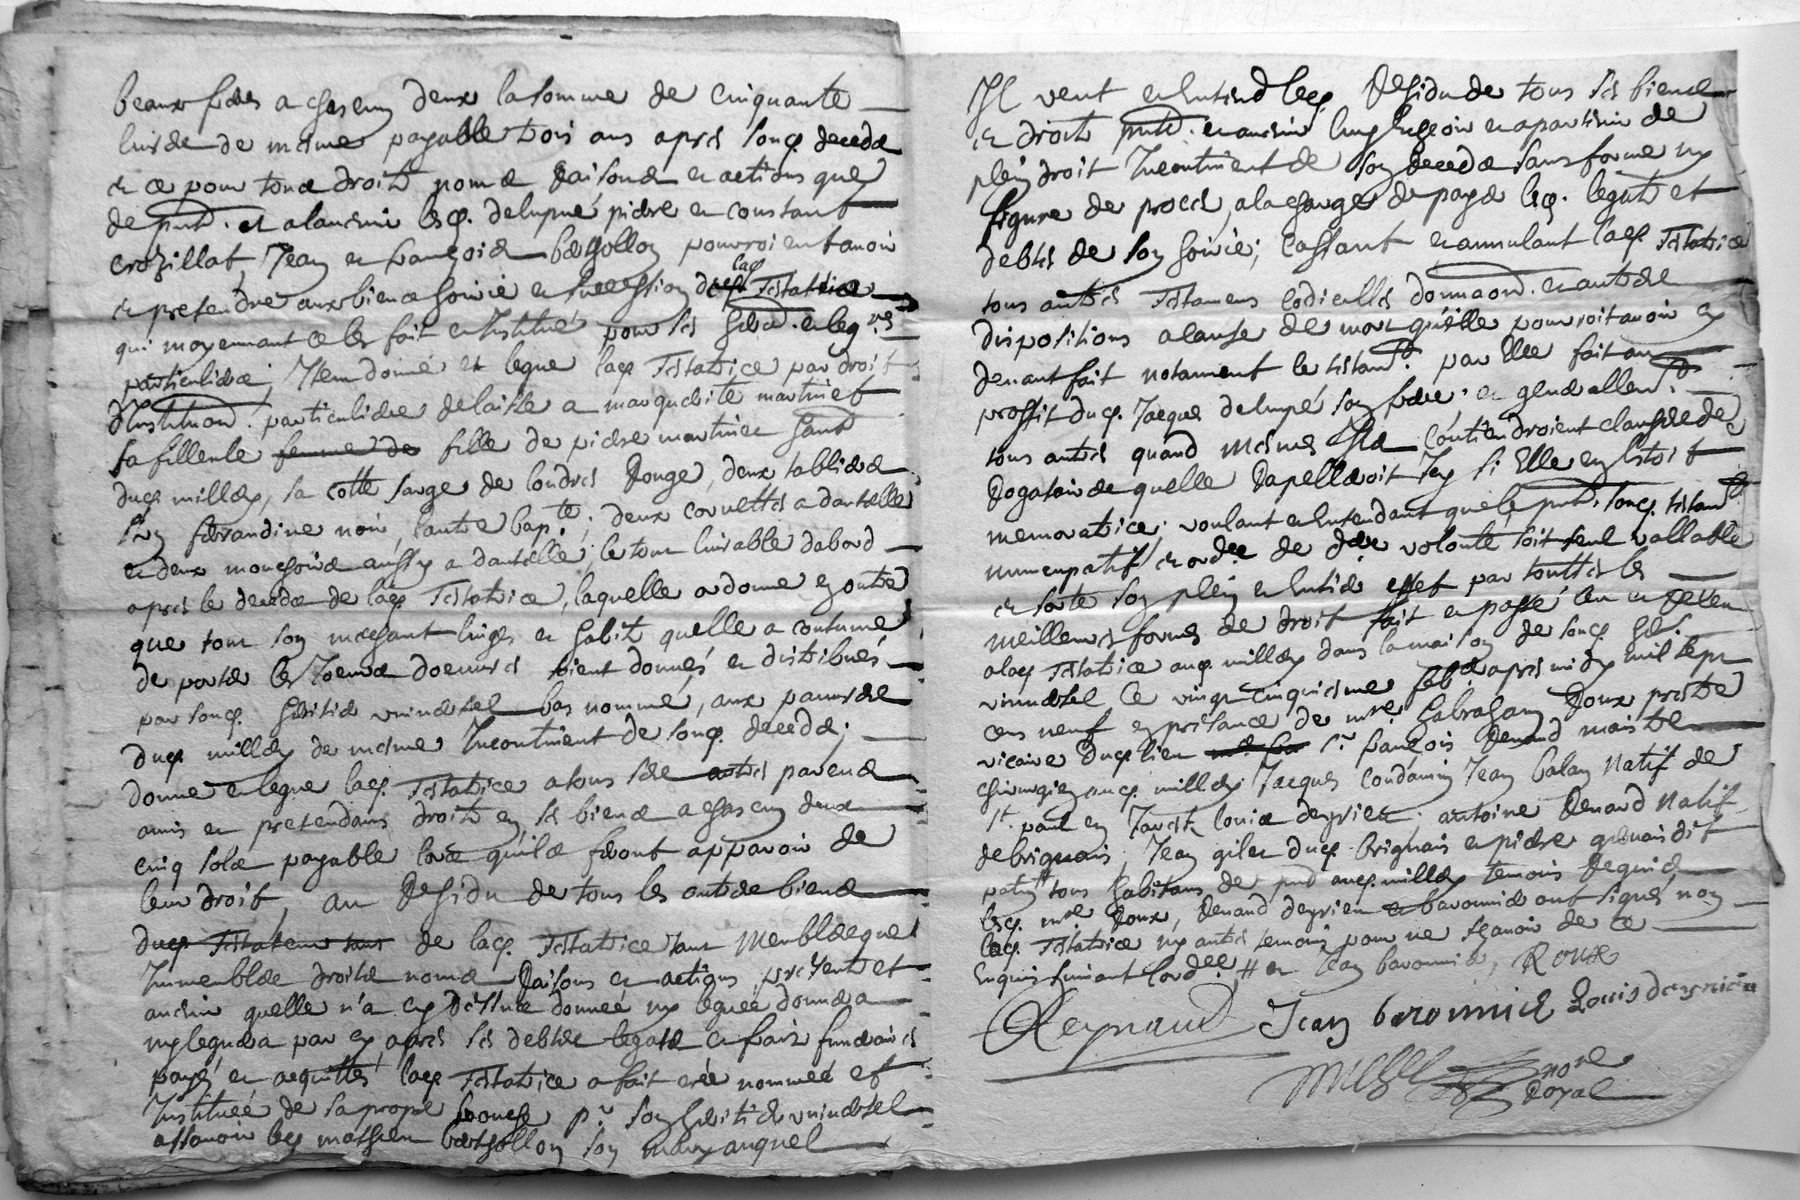 beaux freres a chascun deux la somme de Cinquante
livres de mesme payable trois ans apres son decedz
et ce pour tous droitz noms Raisons et actions que
de pnt. et aladvenir lesq. delupué pierre et constant
Crozillat, Jean et françois berthollon pourroient avoir
et pretendre aux biens hoirie et succession de laq testatrice
qui moyennant ce les fait et Institué pour ses herit. et leg.res
particuliers; Item donne et legue laq testatrice par droit
d'Institution. particuliere delaisse a marguerite martinet
sa filleule femme de fille de pierre martinet
duq millery, sa cotte sarge de londres Rouge, deux tabliers
l'un ferrandine noir, l'autre bap.te; deux cornettes a dantelle
et deux mouchoirs aussy a dantelle; le tout livrable dabord
apres le decedz de laq testatrice, laquelle ordonne en outre
que tout son meschant linges et habitz quelle a coutume
de porter les Jours soient donnés et distribués
par sonq. heritier universel bas nommé, aux pauvres
duq millery de mesme Incontinent de sonq. decedz;
donne et legue laq. testatrice a tous ses autres parens
amis et pretendans droitz en ses biens a chascun deux
cinq solz payable lors quilz feront apparoir de
leur droit, au Residu de tous les autres biens
duq testateur tant de laq. testatrice tant meubles que
Immeubles droitz noms Raisons et actions presents et
advenir quelle n'a cy dessus donnéé ny leguéé donnera
ny leguera par cy apres ses debtes legatz et fraiz funeraires
payés et acquittés laq testatrice a fait créé nomméé et
Instituéé de sa propre bouche p.r son heritier universel
assavoir leq mathieu berthollon son mary auquel
Il veut et entend leq Residu de tous ses biens
et droitz pntz. et advenir luy eschoir et apartenir de
plein droit Incontinent de son decedz sans forme ny
figure de procés, a la charge de payer leq. legatz et
debtes de son hoirie; Cassant et annulant laq testatrice
tous autres testamens codicilles donnaon. et autre
dispositions a cause de mort qu'elle pourroit avoir cy
devant fait notament le testamt. par Elle fait au
proffit duq. Jacques delupé son frere. et generallemt.
tous autres quand mesmes Ilz contiendroient clausses de
Rogatoire de quelle Rapelleroit Icy si Elle en estoit
memoratrice; voulant et entendant que le pnt. sonq. testamt
nuncupatif et ord.ce de d.re volonté soit seul vallable
et sorte son plein et entier effet par touttes les
meilleures formes de droit fait et passé leu et Releu
a laq testatrice auq. millery dans la maison de sonq her.
universel Ce vingt cinquiesme feb.er apres midy mil sept
cens neuf en presance de m.re habraham Roux prestre
vicaire duq lieu s.r françois Renaud maistre
chirurgien auq. millery Jacques Condamin Jean balay Natif de
S.t paul en Jarest, louis deyrieu. antoine Renaud Natif
de brignais, Jean gilet duq. brignais et pierre
tous habitans de pnt auq. millery temoins Requis
lesq. m.re Roux, Renaud deyrieu et baronnier ont signés non
laq. testatrice ny autres temoins pour ne sçavoir de ce
enquis suivant lord.ce # et Jean baronnier, Roux
Reynaud Jean baronnier Louis deyrieu
michel no.re
Royal